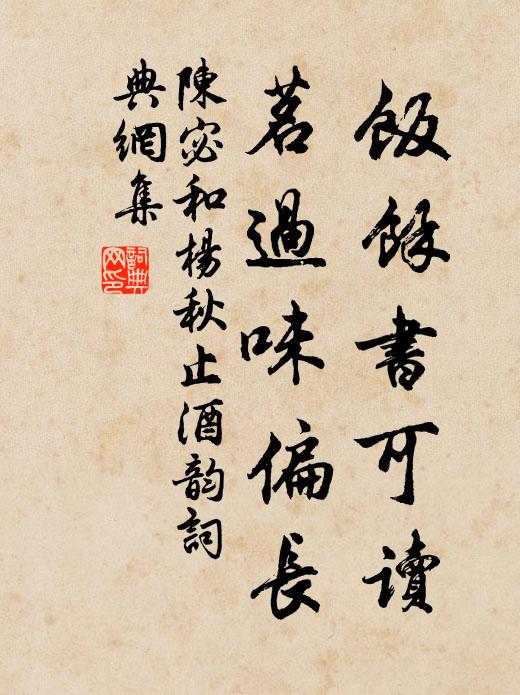 飯餘書可讀
茗過味偏長
陳宓和楊秋止酒韵詞
典網集
詞典網印